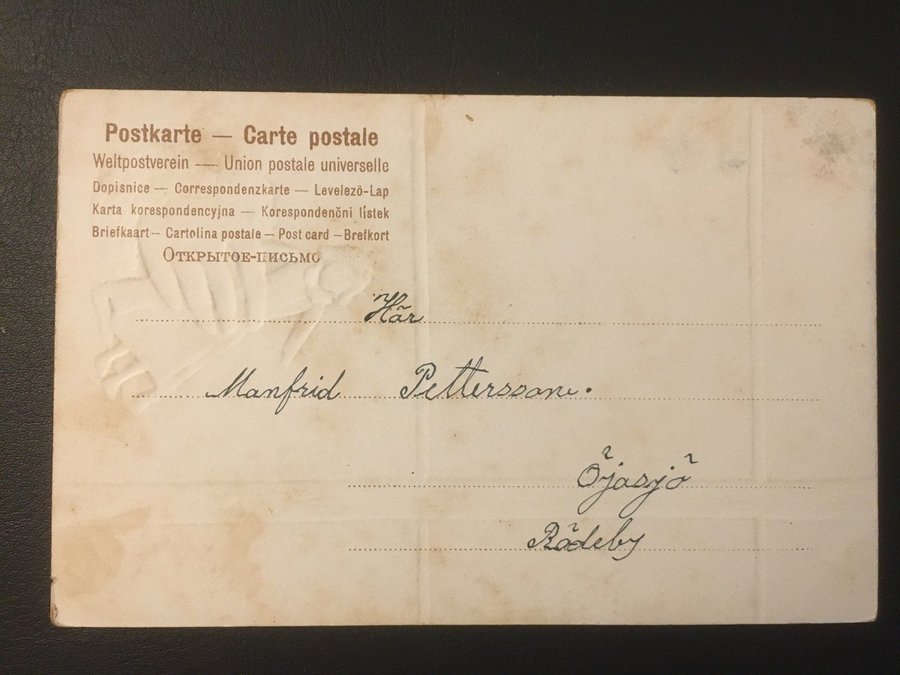 Postkarte — Carte postale
Weltpostverein — Union postale universelle
Dopisnice — Correspondenzkarte — Levelező-Lap
Karta korespondencyjna — Korespondenční lístek
Briefkaart — Cartolina postale — Post card — Brefkort
Открытое-письмо
Här
Manfrid Pettersson.
Öjasjö
Rödeby